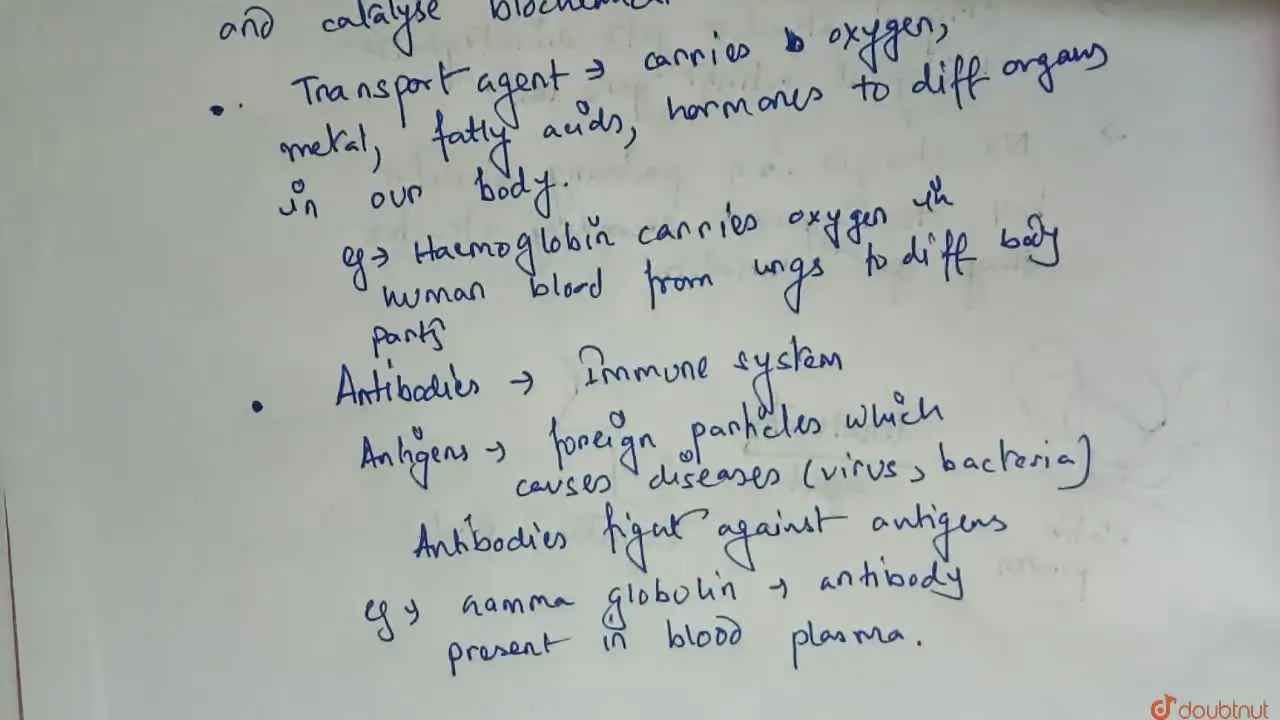 and catalyse biochemical
• Transport agent → carries oxygen,
metal, fatty acids, hormones to diff organs
in our body.
eg → Haemoglobin carries oxygen in
human blood from ungs to diff body
parts
• Antibodies → Immune system
Antigens → foreign particles which
causes diseases (virus, bacteria)
Antibodies fight against antigens
eg → Gamma globulin → antibody
present in blood plasma.
doubtnut